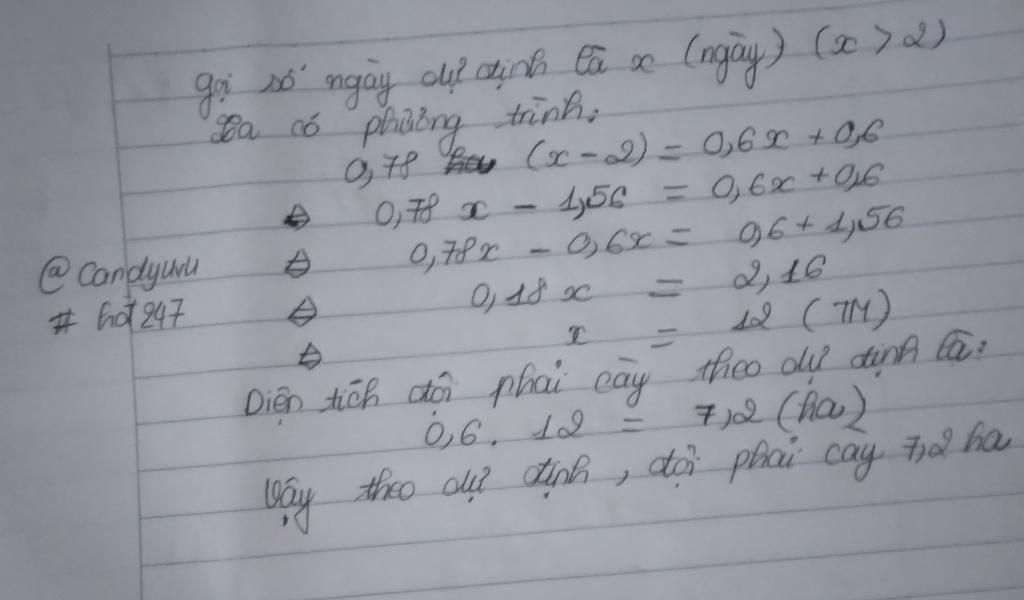 gọi số ngày dự định là x (ngày) (x > 2)
Ta có phương trình:
0,78 (x - 2) = 0,6x + 0,6
⇔ 0,78x - 1,56 = 0,6x + 0,6
⇔ 0,78x - 0,6x = 0,6 + 1,56
@candyuvu
⇔ 0,18x = 2,16
# hd247
⇔ x = 12 (TM)
Diện tích đội phải cày theo dự định là:
0,6. 12 = 7,2 (ha)
Vậy theo dự định, đội phải cay 7,2 ha